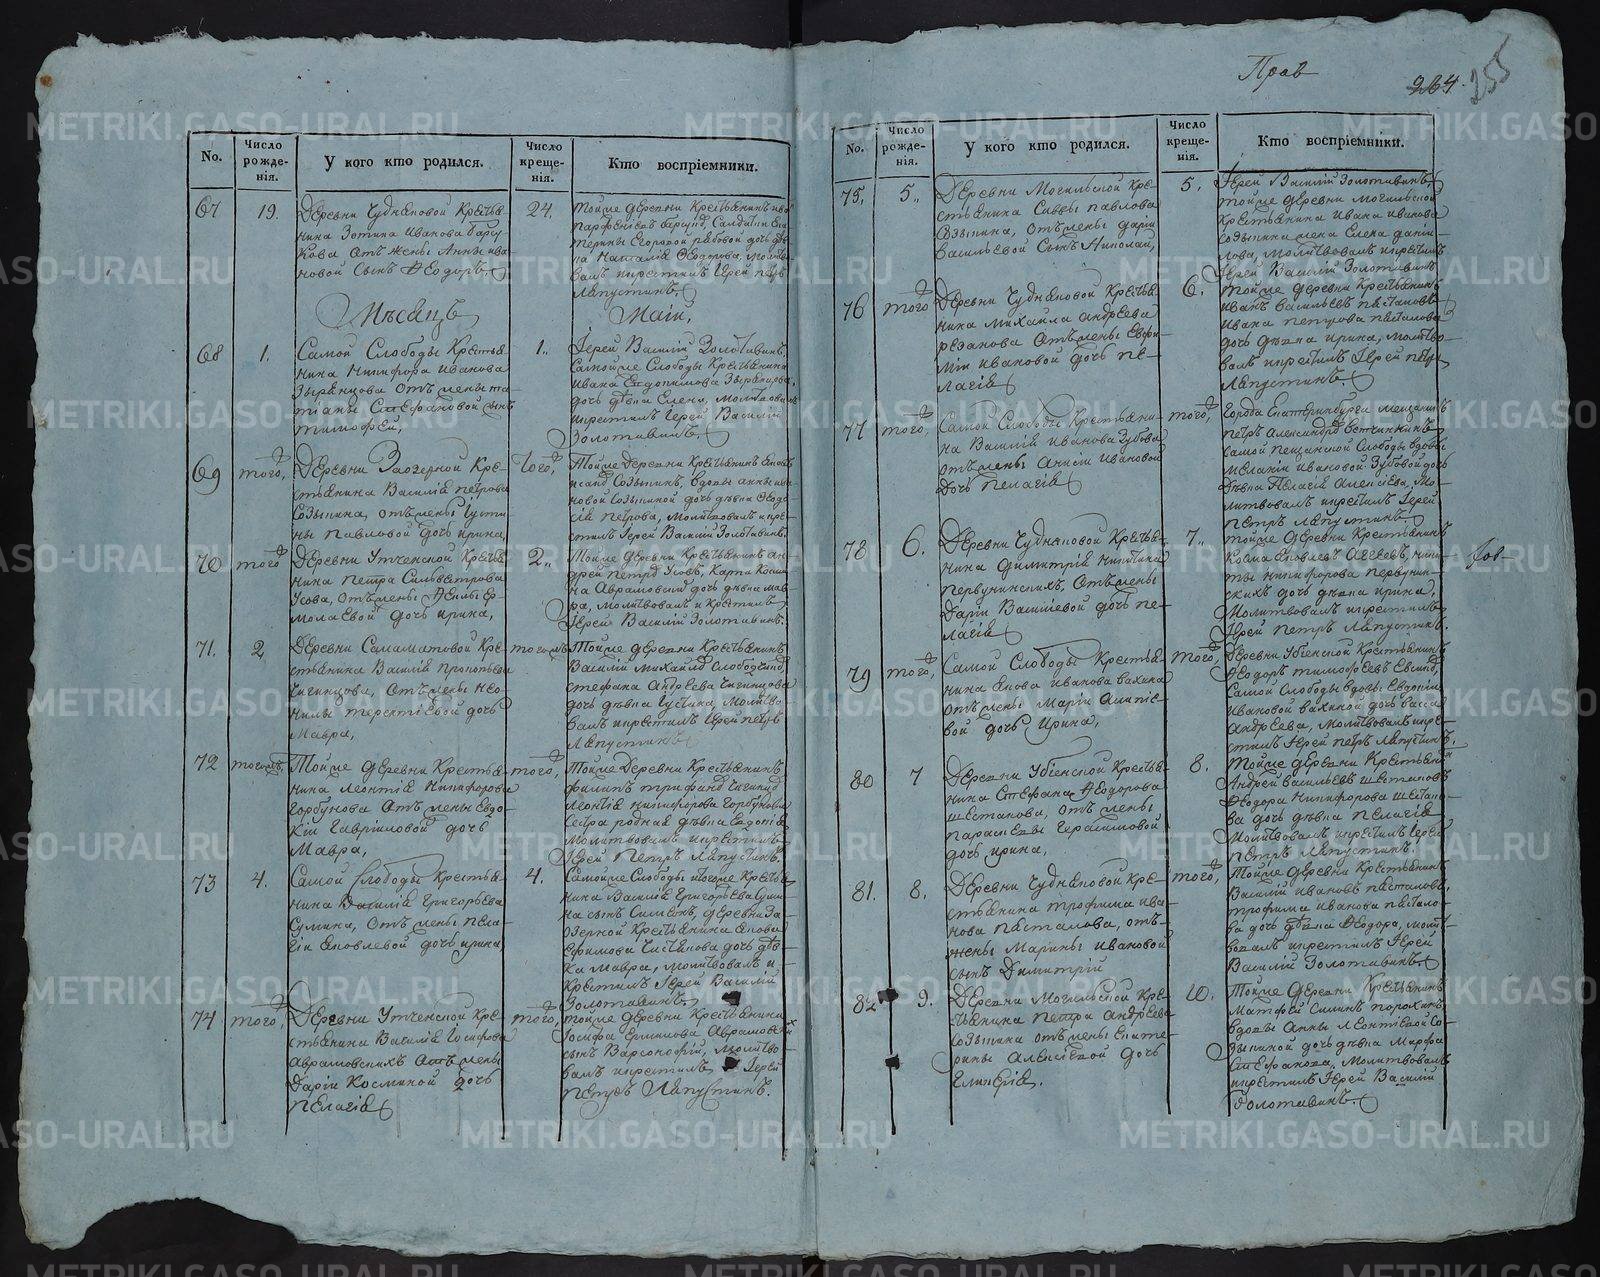 Прав
264.
255
No.
Число рожде-нія.
У кого кто родился.
Число креще-нія.
Кто воспріемники.
67
19.
Деревни Чудиновой Кресть
нина Зотика Иванова
кова отъ жены Анны Ива
новой сынъ Ѳеодоръ.
24.
Тойже деревни Крестьянинъ
дочь дѣв
ка Наталія Ѳеодорова, молит
валъ и крестилъ Іерей Петръ
Ляпустинъ.
Мѣсяцъ
Маій.
68
1.
Самой Слободы Кресть
нина Никифора Иванова
Зырянцова отъ жены Та
тіаны Стефановой сынъ
Тимофей,
1.
Іерей Василій Золотавинъ,
Самойже Слободы Крестьянина
Ивана Зырянцова
дочь дѣвка Елена, молитвовалъ
и крестилъ Іерей Василій
Золотавинъ.
69
того,
Деревни Заозерной Кре
стьянина Василія Петрова
Созыкина, отъ жены Іусти
ны Павловой дочь Ирина,
того,
Тойже Деревни Крестьянинъ
Созыкинъ, вдовы Анны Ива
новой Созыкиной дочь дѣвка Ѳеодо
сія Петрова, молитвовалъ и кре
стилъ Іерей Василій Золотавинъ.
70
того
Деревни Утченской Кресть
нина Петра Сильвестрова
Усова, отъ жены Ер
молаевой дочь Ирина,
2.
Тойже деревни Крестьянинъ Ан
дрей Петровъ Усовъ, Карпа Косми
на Аврамовскій дочь дѣвка Мав
ра, молитвовалъ и крестилъ
Іерей Василій Золотавинъ.
71.
2
Деревни Саламатовой Кре
стьянина Василія Прокопьева
Чигинцова, отъ жены Нео
нилы Терентіевой дочь
Мавра,
тогожъ
Тойже деревни Крестьянинъ
Василій Михайловъ
Стефана Андреева Чигинцова
дочь дѣвка Іустина, молитво
валъ и крестилъ Іерей Петръ
Ляпустинъ
72
тогожъ,
Тойже деревни Кресть
нина Леонтія Никифорова
Горбунова отъ жены Евдо
кіи Гавріиловой дочь
Мавра,
того,
Тойже Деревни Крестьянинъ
Филипъ Трифановъ
Леонтія Никифорова Горбунова
сестра родная дѣвка Евдокія
молитвовалъ и крестилъ
Іерей Петръ Ляпустинъ.
73
4.
Самой Слободы Кресть
нина Василія Григорьева
Сумина, отъ жены Пела
гіи Яковлевой дочь Ирина
4.
Самойже Слободы Крестья
нина Василія Григорьева Суми
на сынъ Симеонъ, деревни За
озерной Крестьянина Якова
Ефимова Чистякова дочь дѣв
ка Мавра, молитвовалъ и
крестилъ Іерей Василій
Золотавинъ.
74
того,
Деревни Утченской Кре
стьянина Василія Іосифова
Аврамовскихъ отъ жены
Даріи Косминой дочь
Пелагія
того,
Тойже деревни Крестьянина
Іосифа Ермилова Аврамовских
сынъ Варсонофій, молитво
валъ и крестилъ Іерей
Петръ Ляпустинъ.
No.
Число рожде-нія.
У кого кто родился.
Число креще-нія.
Кто воспріемники.
75,
5.
Деревни Могильской Кре
стьянина Саввы Павлова
Созыкина, отъ жены Даріи
Васильевой сынъ Николай,
5.
Іерей Василій Золотавинъ,
тойже деревни Могильской
Крестьянина Ивана Иванова
Созыкина жена Елена Дани
лова, молитвовалъ и крестилъ
Іерей Василій Золотавинъ
76
того
Деревни Чудиновой Кресть
нина Михайла Андреева
Резанова отъ жены Евфи
міи Ивановой дочь Пе
лагія
6.
Тойже деревни Крестьянинъ
Иванъ Васильевъ Пасталовъ
Ивана Петрова Пасталова
дочь дѣвка Ирина, молитво
валъ и крестилъ Іерей Петръ
Ляпустинъ.
77
того,
Самой Слободы Крестьяни
на Василія Иванова Зубова
отъ жены Анисіи Ивановой
дочь Пелагія
того,
Города Екатеринбурга мещанинъ
Петръ Александровъ
самой Пещанской Слободы вдовы
Меланіи Ивановой Зубовой дочь
дѣвка Пелагія Алексіева, мо
литвовалъ и крестилъ Іерей
Петръ Ляпустинъ.
78
6.
Деревни Чудиновой Кресть
нина Димитрія Никитина
Первунинскихъ, отъ жены
Даріи Васильевой дочь Пе
лагія
7.
Тойже деревни Крестьянинъ
Козма Яковлевъ Агеевъ, Ники
ты Никифорова Первунин
скихъ дочь дѣвка Ирина,
молитвовалъ и крестилъ
Іерей Петръ Ляпустинъ.
79
того,
Самой Слободы Кресть
нина Якова Иванова
отъ жены Маріи Алипіе
вой дочь Ирина,
того,
Деревни Убіенской Крестьянинъ
Ѳеодоръ Тимофеевъ
Самой Слободы вдовы Евдокіи
Ивановой дочь Васса
Андреева, молитвовалъ и кре
стилъ Іерей Петръ Ляпустинъ.
80
7
Деревни Убіенской Кресть
нина Стефана Ѳеодорова
Шестакова, отъ жены
Параскевы Герасимовой
дочь Ирина,
8.
Тойже деревни Крестьянин
Андрей Васильевъ Шестаковъ
Ѳеодора Никифорова Шестако
ва дочь дѣвка Пелагія
молитвовалъ и крестилъ Іерей
Петръ Ляпустинъ.
81.
8.
Деревни Чудиновой Кре
стьянина Трофима Ива
нова Пасталова, отъ
жены Марины Ивановой
сынъ Димитрій
того,
Тойже деревни Крестьянинъ
Василій Ивановъ Пасталовъ,
Трофима Иванова Пастало
ва дочь дѣвка Ѳеодора, молит
вовалъ и крестилъ Іерей
Василій Золотавинъ.
82
9.
Деревни Могильской Кре
стьянина Петра Андреева
Созыкина отъ жены Екате
рины Алексіевой дочь
Гликерія.
10.
Тойже Деревни Крестьянинъ
Матфей Силинъ
вдовы Анны Леонтіевой Со
зыкиной дочь дѣвка Марфа
Стефанова, молитвовалъ
и крестилъ Іерей Василій
Золотавинъ.
METRIKI.GASO-URAL.RU